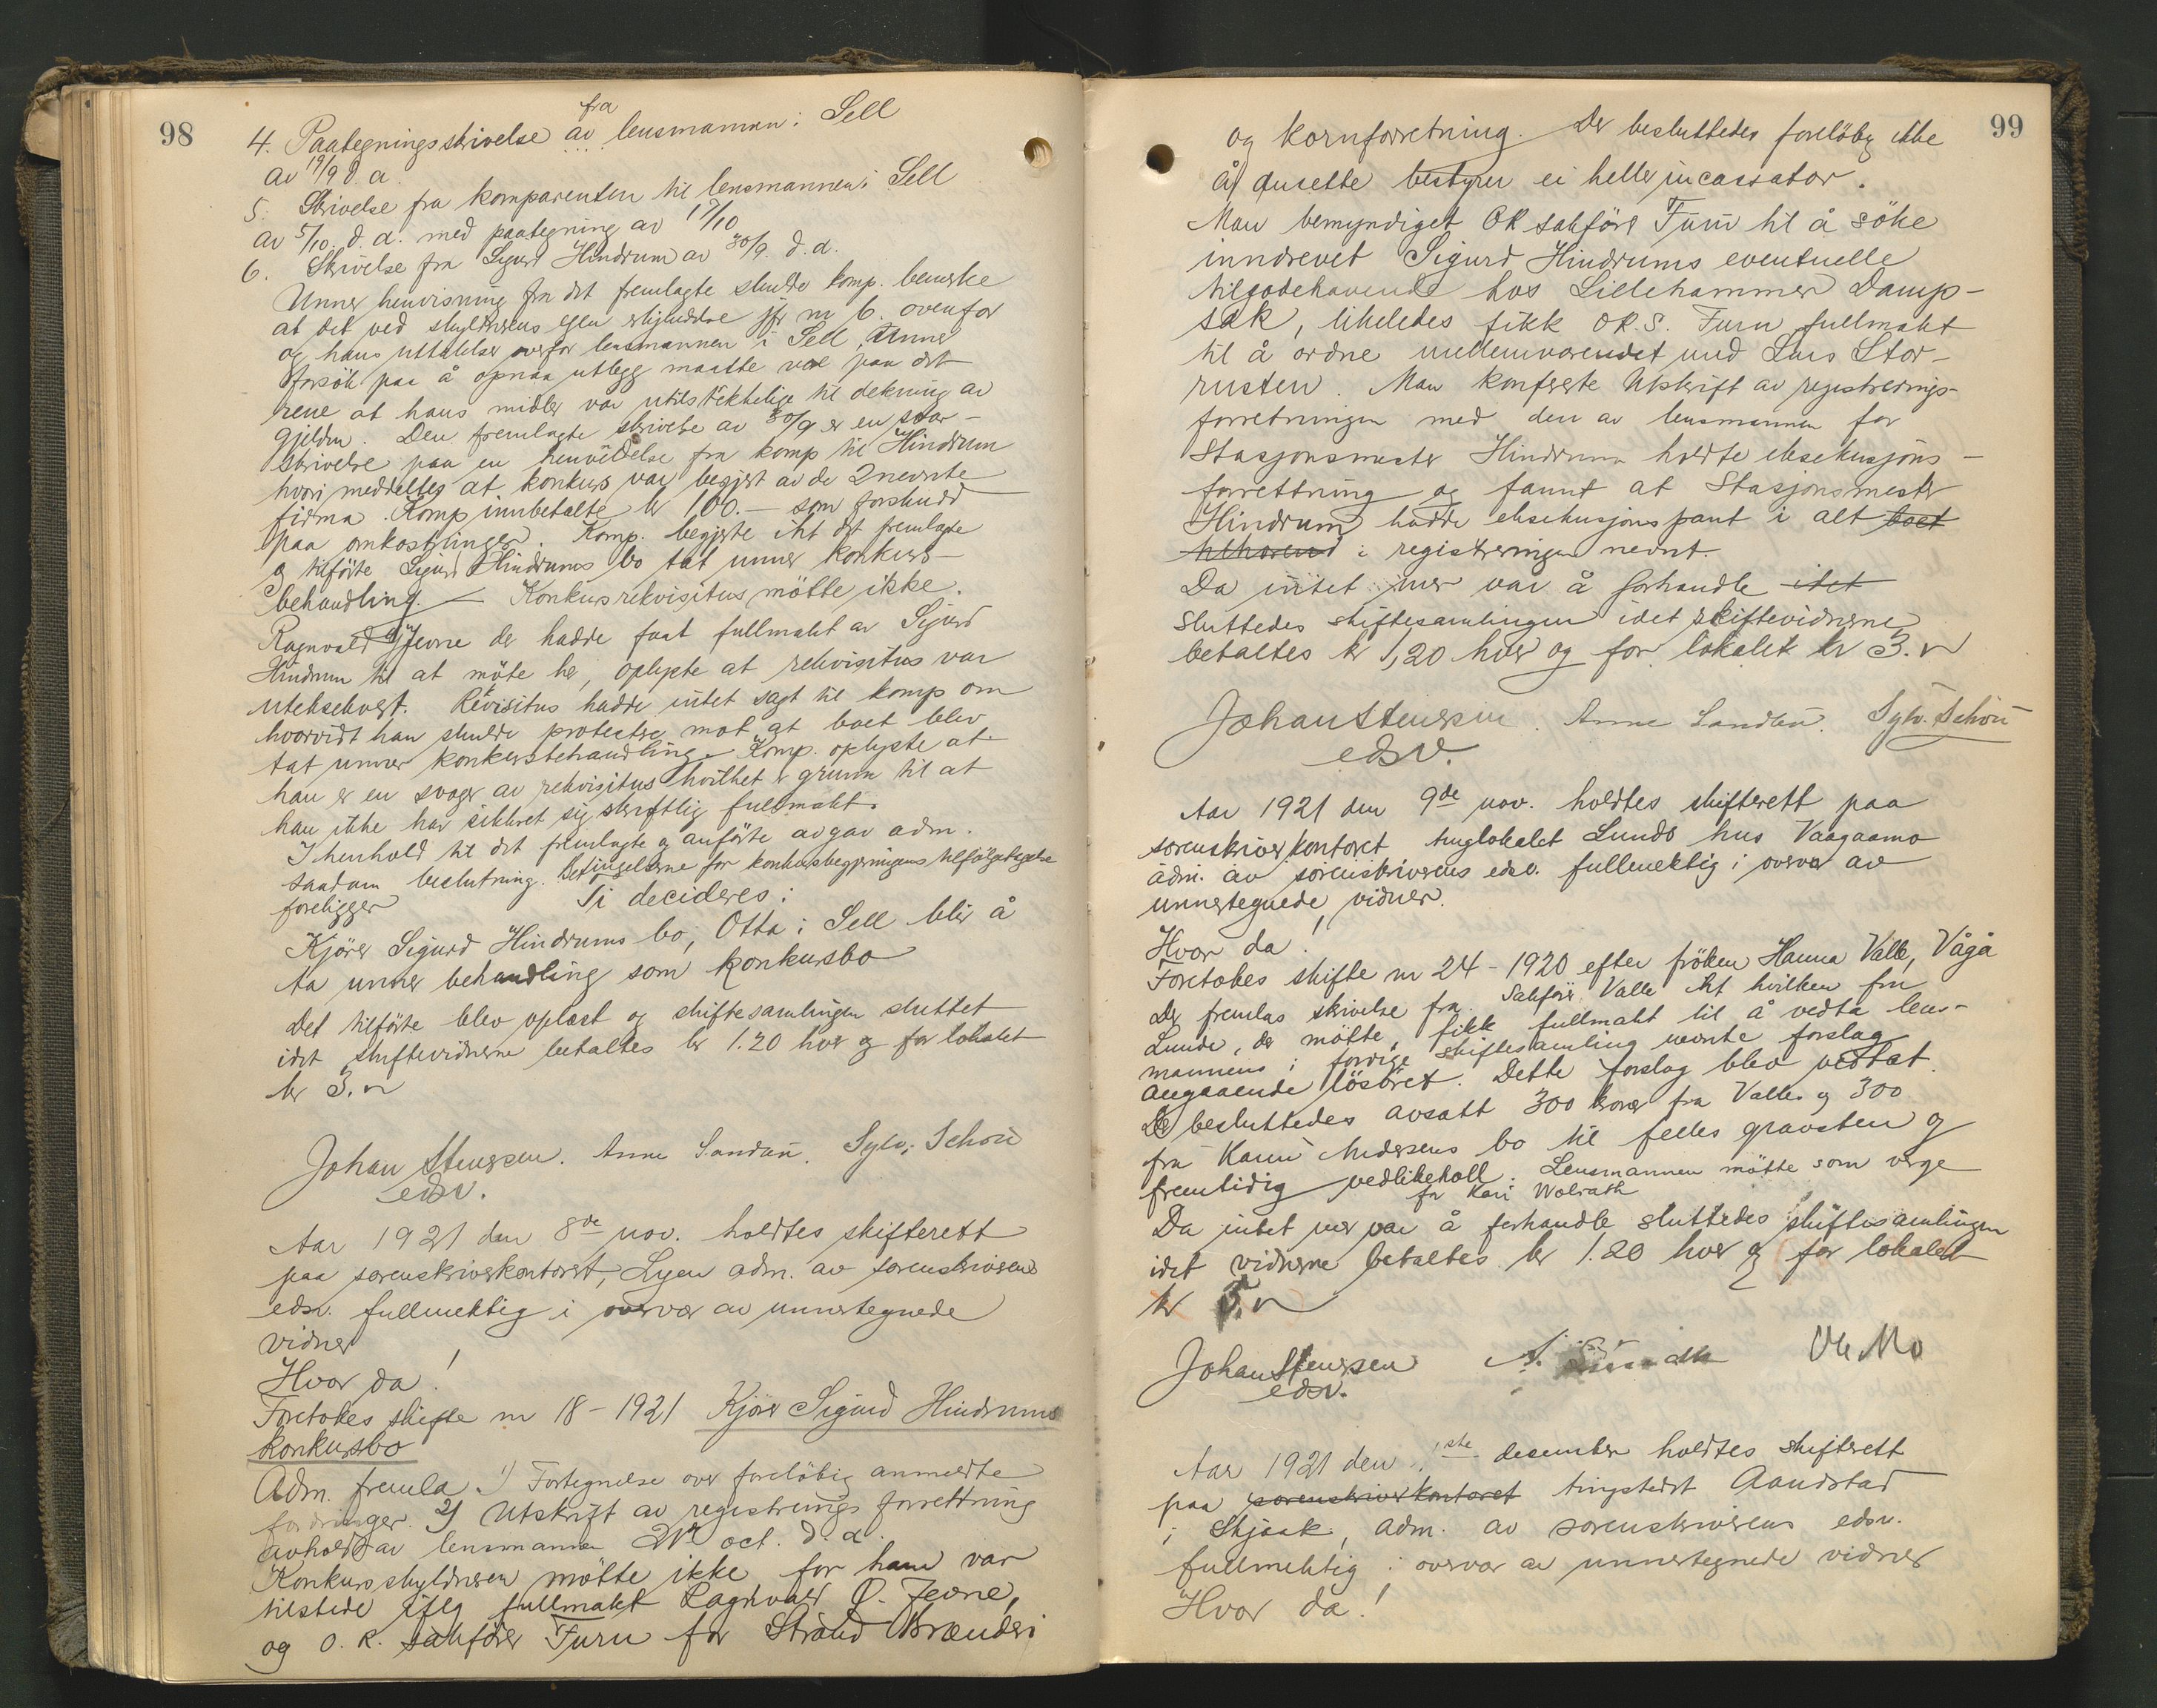 98
4. Paategningsskrivelse av fra lensmannen i Sell
av 19/9 d.a.
5. Skrivelse fra komparenten til lensmannen i Sell
av 5/10. d.a. med paategning av 17/10
6. Skrivelse fra Sigurd Hindrum av 30/9. d.a.
Unner henvisning fra det fremlagte skulde komp. bemerke
at det ved skyldnerens egen erkjendelse jfr nr 6. ovenfor
og hans uttalelser overfor lensmannen i Sell, unner
forsök paa å opnaa utlegg maatte være paa det
rene at hans midler var utilstrekkelige til dekning av
gjelden. Den fremlagte skrivelse av 30/9 er en svar-
skrivelse paa en henvendelse fra komp til Hindrum
hvori meddeltes at konkurs var begjert av de 2 nevnte
firma. Komp innbetalte kr 100.- som forskudd
paa omkostninger. Komp. begjerte iht det fremlagte
og tilförte Sigurd Hindrums bo tat unner konkurs-
behandling. — Konkursrekvisitus mötte ikke.
Ragnvald Jevne der hadde faat fullmakt av Sigurd
Hindrum til at möte her, oplyste at rekvisitus var
utekskvert. Revisitus hadde intet sagt til komp om
hvorvidt han skulde protestere mot at boet blev
tat unner konkursbehandling. Komp. oplyste at
han er en svoger av rekvisitus hvilket er grunn til at
han ikke har sikkret sig skriftlig fullmakt.
I henhold til det fremlagte og anförte avgav adm.
saadan beslutning. Betingelserne for konkursbegjeringens tilfölgetagelse
foreligger
Ti decideres:
Kjörer Sigurd Hindrums bo, Otta i Sell blir å
ta unner behandling som konkursbo
Det tilförte blev oplæst og skiftesamlingen sluttet
idet skiftevidnerne betaltes kr 1.20 hver og for lokalet
kr 3.-
Johan Stenersen. Anne Sandun. Sylv. Schou
edsv.
Aar 1921 den 8de nov. holdtes skifterett
paa sorenskriverkontoret, Lyen adm. av sorenskriverens
edsv. fullmektig i overvær av unnertegnede
vidner
Hvor da!
Foretokes skifte nr 18-1921 Kjörer Sigurd Hindrums
konkursbo
Adm. fremla 1) Fortegnelse over forelöbig anmeldte
fordringer. 2) Utskrift av registrerings forrettning
avholdt av lensmannen oct. d.a.
Konkursskyldneren mötte ikke for ham var
tilstede iflg fullmakt Ragnvald O. Jevne,
og O.R. sakförer Furu for Strand Brænderi
99
og kornforretning. Der besluttedes forelöbig ikke
å ansette bestyrer ei heller incassator.
Man bemyndiget OR sakförer Furu til å söke
inndrevet Sigurd Hindrums eventuelle
tilgodehavende hos Lillehammer Damp-
sak, likeledes fikk OR.S. Furu fullmakt
til å ordne mellemværendet med Lars Stor-
rusten. Man konfererte Utskrift av registrerings-
forretningen med den av lensmannen for
Stasjonsmester Hindrum holdte eksekusjons-
forrettning og fannt at Stasjonsmester
Hindrum hadde eksekusjonspant i alt boet
tilhørend i registreringen nevnt.
Da intet mer var å forhandle idet
sluttedes skiftesamlingen idet skiftevidnerne
betaltes kr 1,20 hver og for lokalet kr 3.-
Johan Stenersen. Anne Sandun. Sylv. Schou
edsv.
Aar 1921 den 9de nov. holdtes skifterett paa
sorenskriverkontoret tinglokalet Lunds hus Vaagaamo
adm. av sorenskriverens edsv. fullmektig i overvær av
unnertegnede vidner.
Hvor da!
Foretokes skifte nr 24-1920 efter fröken Hanna Valle, Vågå
Der fremlas skrivelse fra Sakförer Valle iht hvilken fru
Lunde, der mötte, fikk fullmakt til å vedta lens-
mannens i forrige skiftesamling nevnte forslag
angaaende lösöret. Dette forslag blev vedtat.
Det besluttedes avsatt 300 kroner fra Valles og 300
fra Karin Andersens bo til felles gravsten og
fremtidig vedlikeholl. Lensmannen mötte som verge
for Kari Wolrath
Da intet mer var å forhandle sluttedes skiftesamlingen
idet vidnerne betaltes kr 1.20 hver og for lokalet
kr 5.-
Johan Stenersen Ole Mo
edsv.
Aar 1921 den 1ste desember holdtes skifterett
paa sorenskriverkontoret tingstedet Aandstad
i Skjaak, adm. av sorenskriverens edsv.
fullmektig i overvær av unnertegnede vidner
Hvor da!